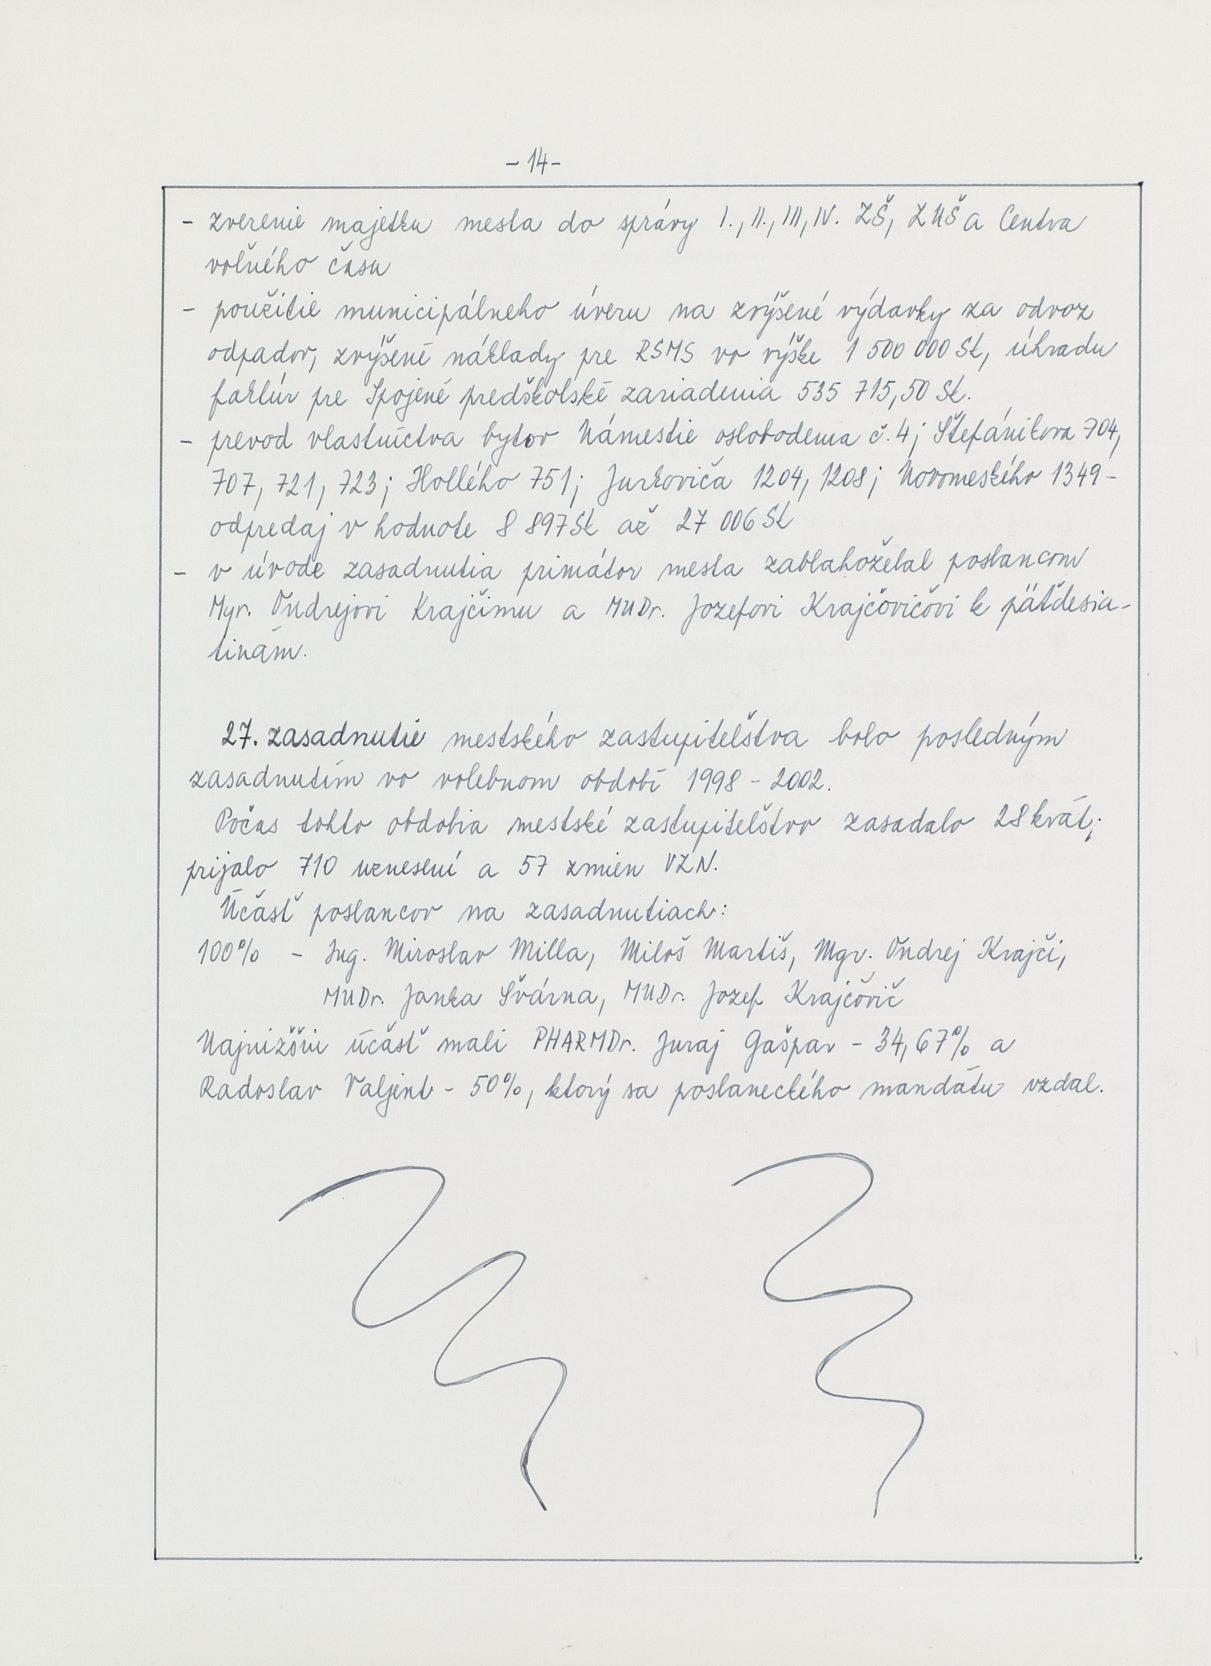 - 14 -
- zverenie majetku mesta do správy I., II., III, IV. ZŠ, ZUŠ a Centra
voľného času
- použitie municipálneho úveru na zvýšené výdavky za odvoz
odpadov, zvýšené náklady pre RSMS vo výške 1 500 000 Sk, úhradu
faktúr pre Spojené predškolské zariadenia 535 715,50 Sk.
- prevod vlastníctva bytov Námestie oslobodenia č. 4; Štefánikova 704,
707, 721, 723; Hollého 751; Jurkoviča 1204, 1208; Novomeského 1349 -
odpredaj v hodnote 8 897 Sk až 27 006 Sk
- v úvode zasadnutia primátor mesta zablahoželal poslancom
Mgr. Ondrejovi Krajčímu a MUDr. Jozefovi Krajčovičovi k päťdesia-
tinám.
27. zasadnutie mestského zastupiteľstva bolo posledným
zasadnutím vo volebnom období 1998 - 2002.
Počas tohto obdobia mestské zastupiteľstvo zasadalo 28 krát;
prijalo 710 uznesení a 57 zmien VZN.
Účasť poslancov na zasadnutiach:
100% - Ing. Miroslav Milla, Miloš Martiš, Mgr. Ondrej Krajčí,
MUDr. Janka Švárna, MUDr. Jozef Krajčovič
Najnižšiu účasť mali PHARMDr. Juraj Gašpar - 34,67% a
Radoslav Valjent - 50%, ktorý sa poslaneckého mandátu vzdal.